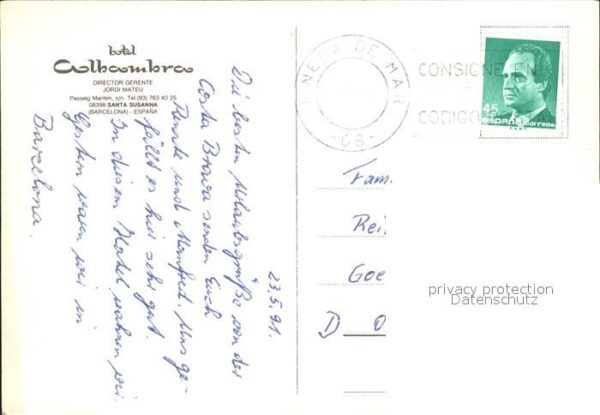 hotel
Alhambra
DIRECTOR GERENTE
JORDI MATEU
Passeig Maritim, s/n. Tel (93) 763 40 25
08398 SANTA SUSANNA
(BARCELONA) - ESPAÑA
23.5.91.
Die besten Urlaubsgrüße von der
Costa Brava senden Euch
Renate und Manfred. Uns ge-
fällt es hier sehr gut.
In diesem Hotel wohnen wir.
Gestern waren wir in
Barcelona.
NEDA DE MAR
08-
CONSIGNE EN
CODIGO
45
españa
correos
Fam.
Rei
Goe
D O
privacy protection
Datenschutz